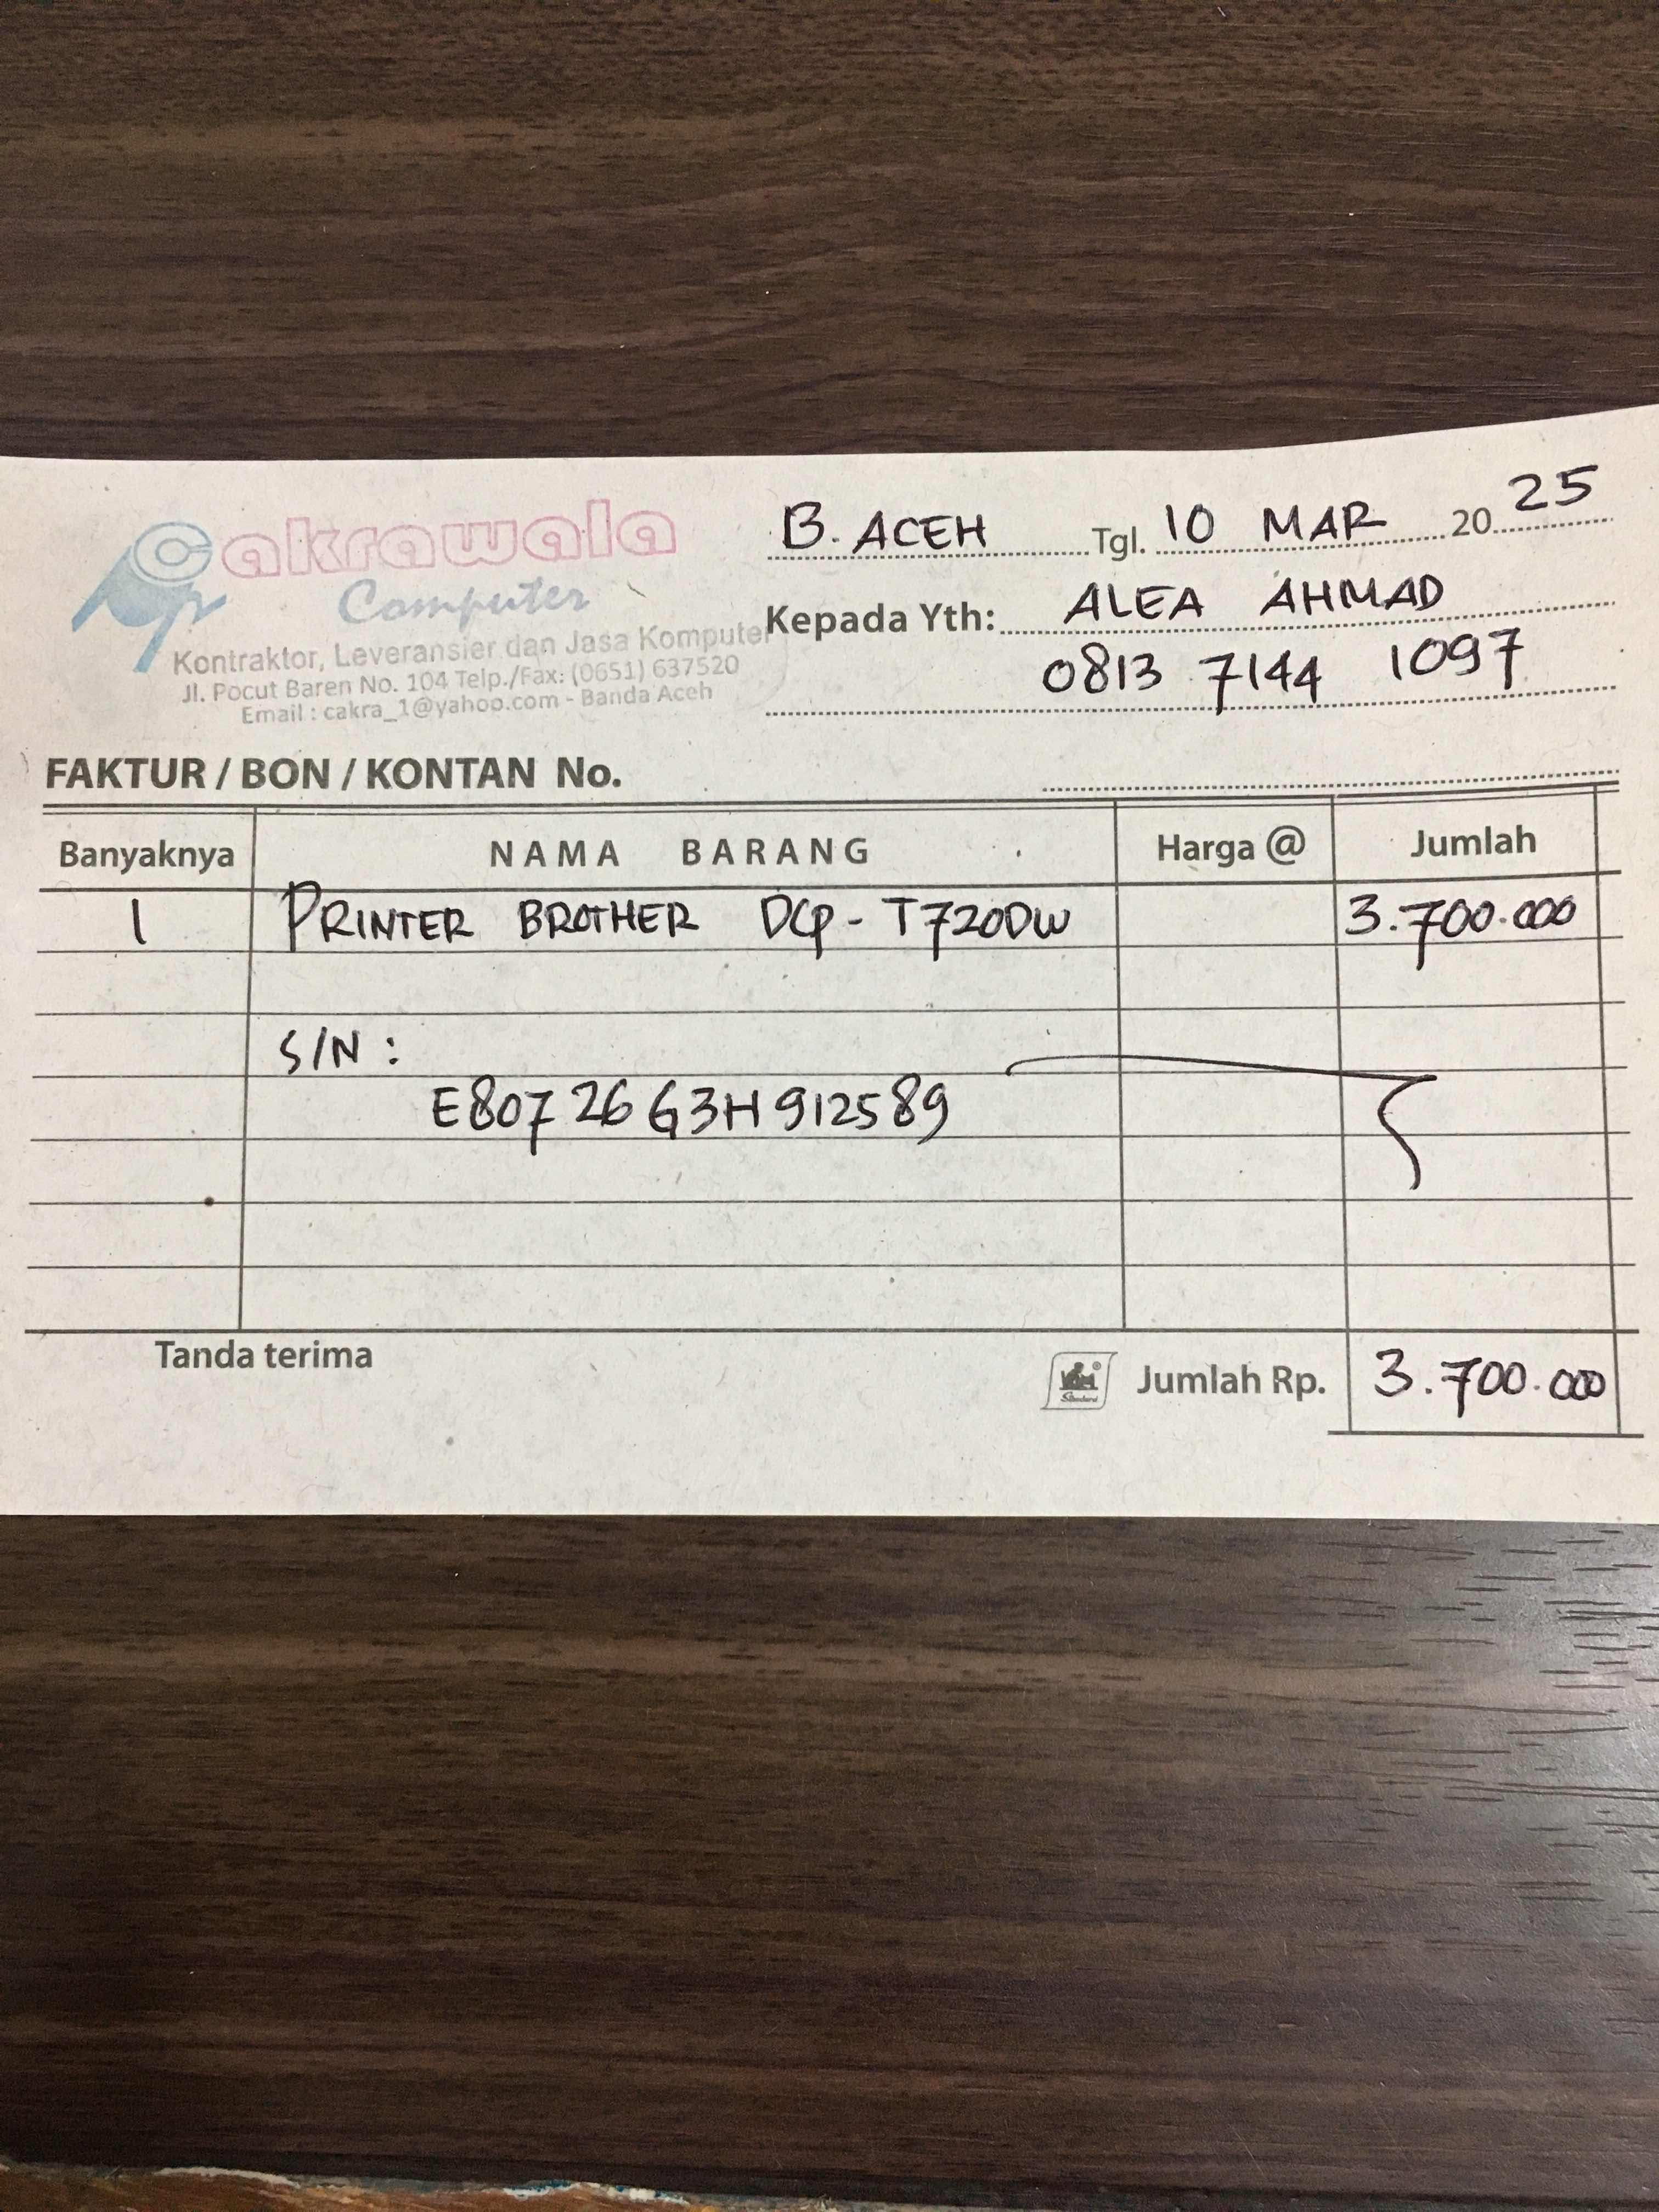 Cakrawala
Computer
Kontraktor, Leveransier dan Jasa Komputer
Jl. Pocut Baren No. 104 Telp./Fax: (0651) 637520
Email : cakra_1@yahoo.com - Banda Aceh
B. ACEH Tgl. 10 MAR 20 25
Kepada Yth: ALEA AHMAD
0813 7144 1097
FAKTUR / BON / KONTAN No.
Banyaknya NAMA BARANG Harga @ Jumlah
1 PRINTER BROTHER DCP - T720DW 3.700.000
S/N :
E80726G3H912589
Tanda terima Jumlah Rp. 3.700.000